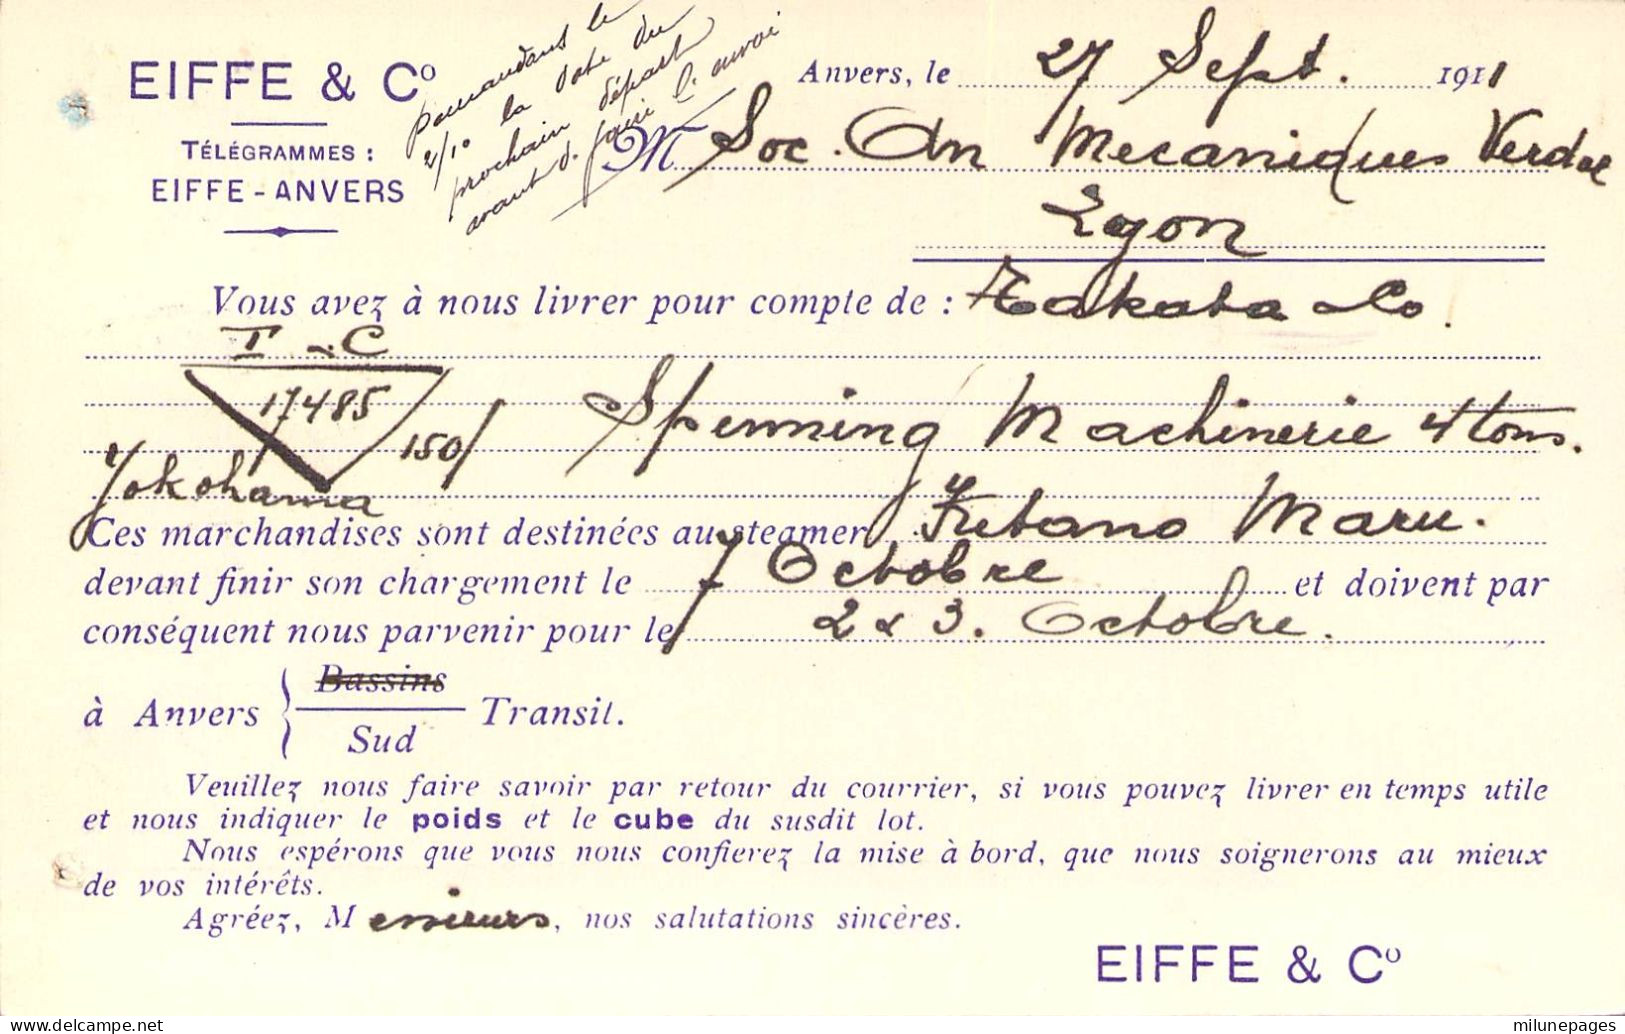 EIFFE & Cº
TÉLÉGRAMMES :
EIFFE - ANVERS
demandant le
2/10 la date du
prochain départ
avant d. faire l. envoi
Anvers, le 27 Sept. 1911
M Soc. An Mecaniques Verdol
Lyon
Vous avez à nous livrer pour compte de : Takata & Co.
T & C
17485
150/ Spinning Machinerie 4 tons.
Yokohama
Ces marchandises sont destinées au steamer Kitano Maru.
devant finir son chargement le 7 Octobre et doivent par
conséquent nous parvenir pour le 2 & 3. Octobre.
à Anvers { Bassins / Sud Transit.
Veuillez nous faire savoir par retour du courrier, si vous pouvez livrer en temps utile
et nous indiquer le poids et le cube du susdit lot.
Nous espérons que vous nous confierez la mise à bord, que nous soignerons au mieux
de vos intérêts.
Agréez, Messieurs, nos salutations sincères.
EIFFE & Cº
milunepages